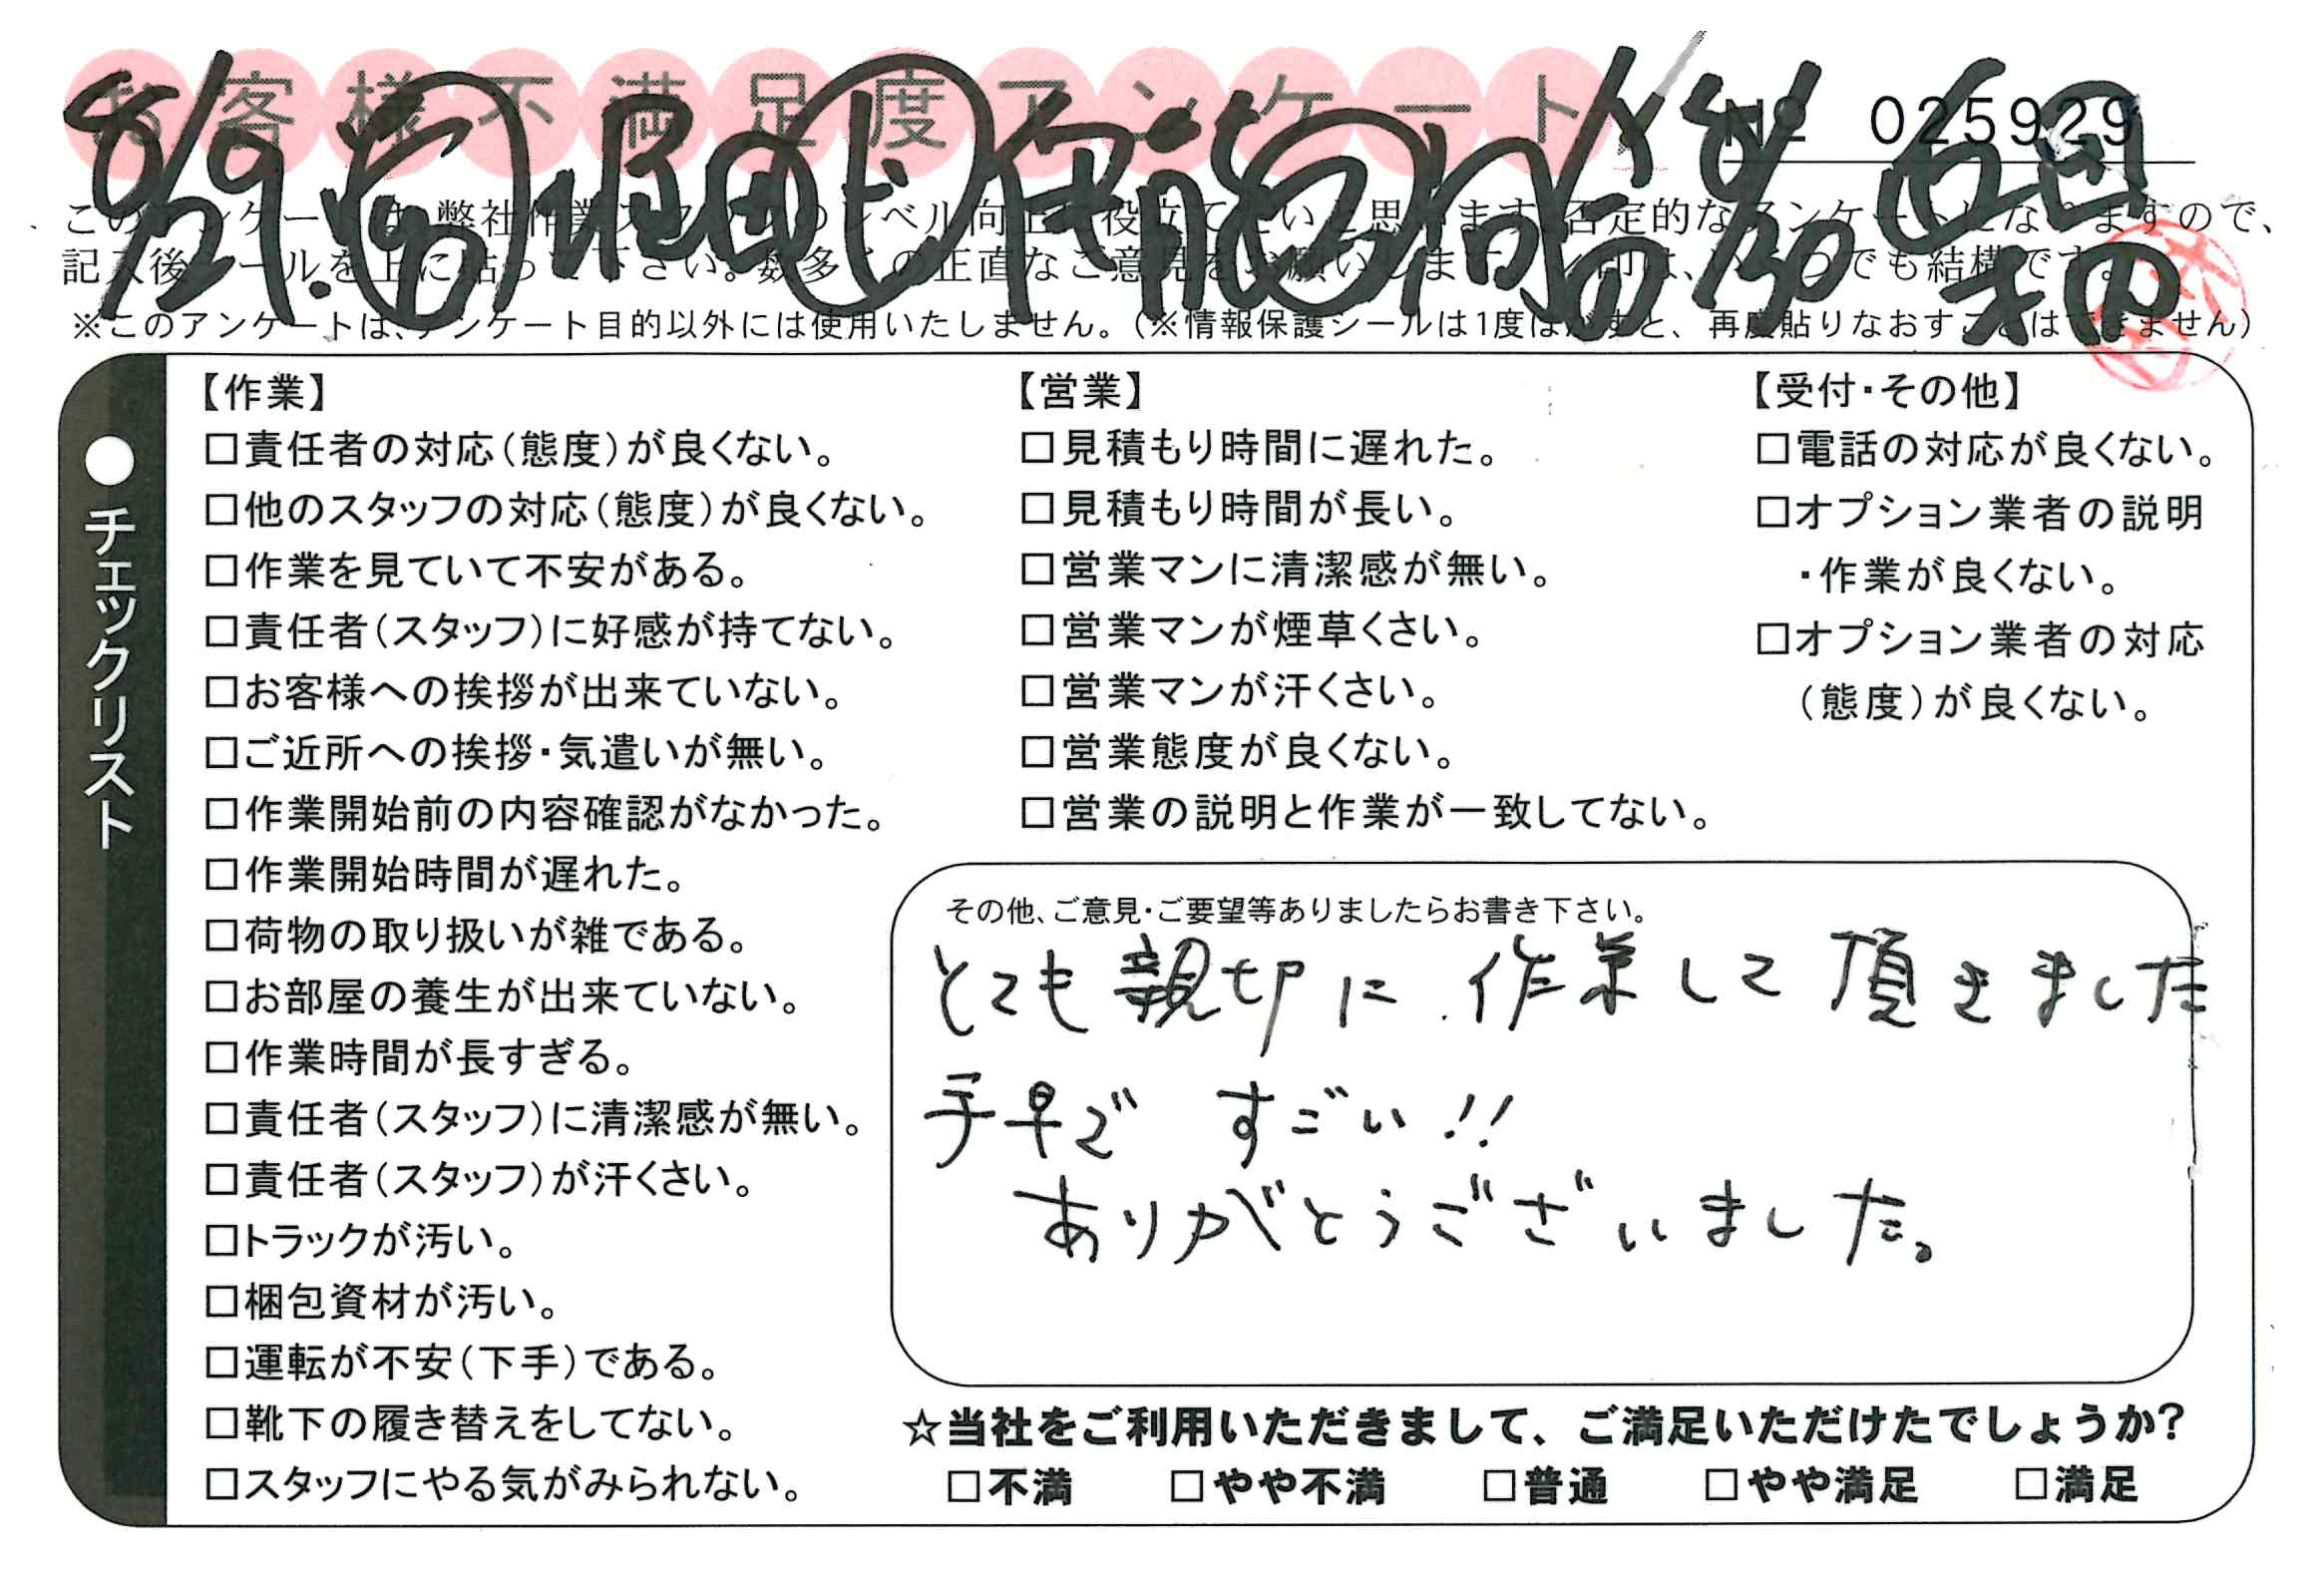 お客様不満足度アンケート
№ 025929
このアンケートは、弊社作業スタッフのレベル向上に役立てたいと思います。否定的なアンケートとなりますので、
記入後シールを上に貼って下さい。数多くの正直なご意見をお願いします。
※このアンケートは、アンケート目的以外には使用いたしません。（※情報保護シールは1度はがすと、再度貼りなおすことはできません）
8/29.
●チェックリスト
【作業】
□責任者の対応（態度）が良くない。
□他のスタッフの対応（態度）が良くない。
□作業を見ていて不安がある。
□責任者（スタッフ）に好感が持てない。
□お客様への挨拶が出来ていない。
□ご近所への挨拶・気遣いが無い。
□作業開始前の内容確認がなかった。
□作業開始時間が遅れた。
□荷物の取り扱いが雑である。
□お部屋の養生が出来ていない。
□作業時間が長すぎる。
□責任者（スタッフ）に清潔感が無い。
□責任者（スタッフ）が汗くさい。
□トラックが汚い。
□梱包資材が汚い。
□運転が不安（下手）である。
□靴下の履き替えをしてない。
□スタッフにやる気がみられない。
【営業】
□見積もり時間に遅れた。
□見積もり時間が長い。
□営業マンに清潔感が無い。
□営業マンが煙草くさい。
□営業マンが汗くさい。
□営業態度が良くない。
□営業の説明と作業が一致してない。
【受付・その他】
□電話の対応が良くない。
□オプション業者の説明
・作業が良くない。
□オプション業者の対応
（態度）が良くない。
その他、ご意見・ご要望等ありましたらお書き下さい。
とても親切に作業して頂きました
手早で すごい!!
ありがとうございました。
☆当社をご利用いただきまして、ご満足いただけたでしょうか？
□不満 □やや不満 □普通 □やや満足 □満足